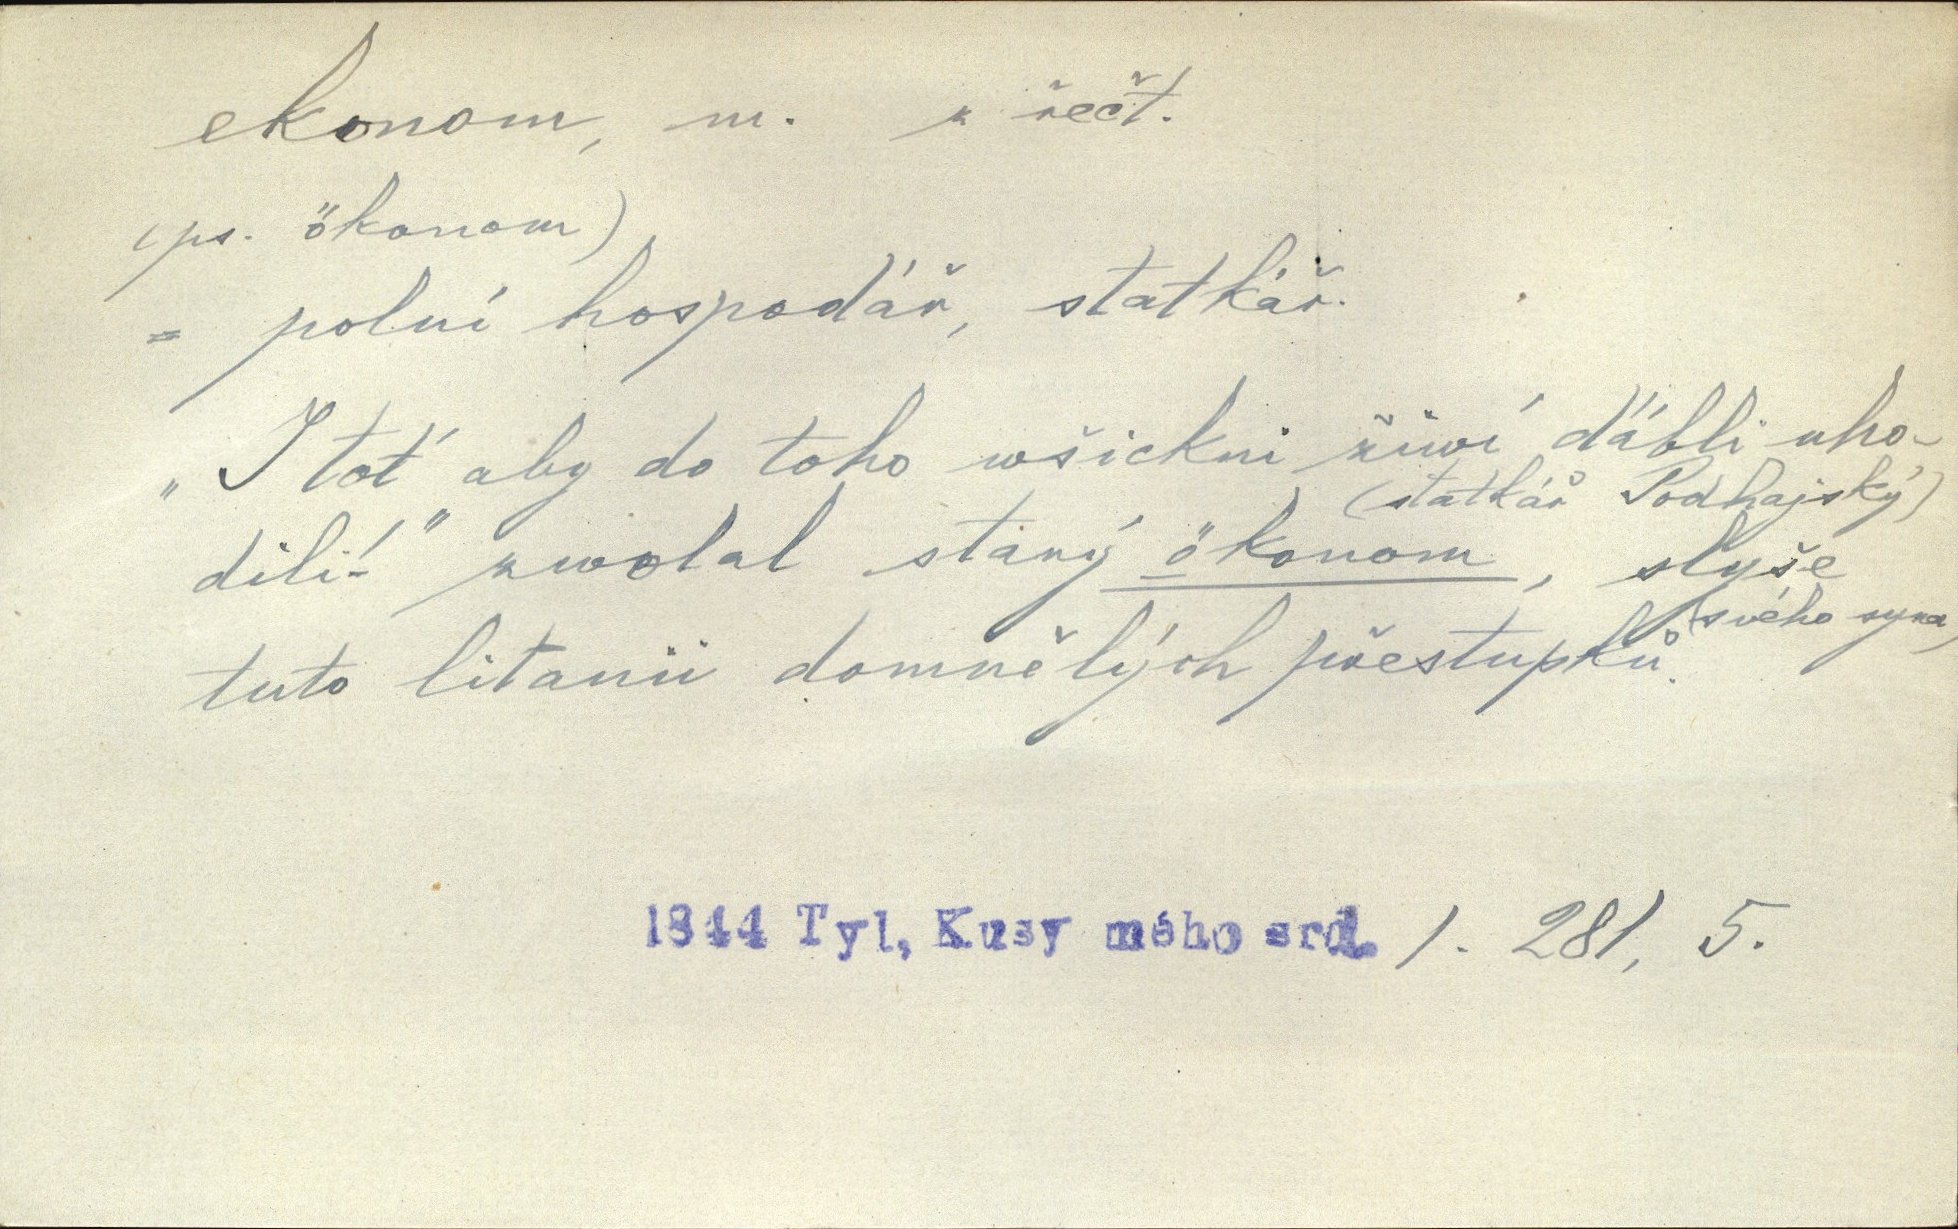 ekonom, m. z řečt.
(ps. ökonom)
= polní hospodář, statkář.
„I toť aby do toho wšickni žiwí ďábli uho-
(statkář Podhajský)
dili!" zwolal starý ökonom, slyše
(svého syna)
tuto litanii domnělých přestupků.
1844 Tyl, Kusy mého srd. 1. 281, 5.